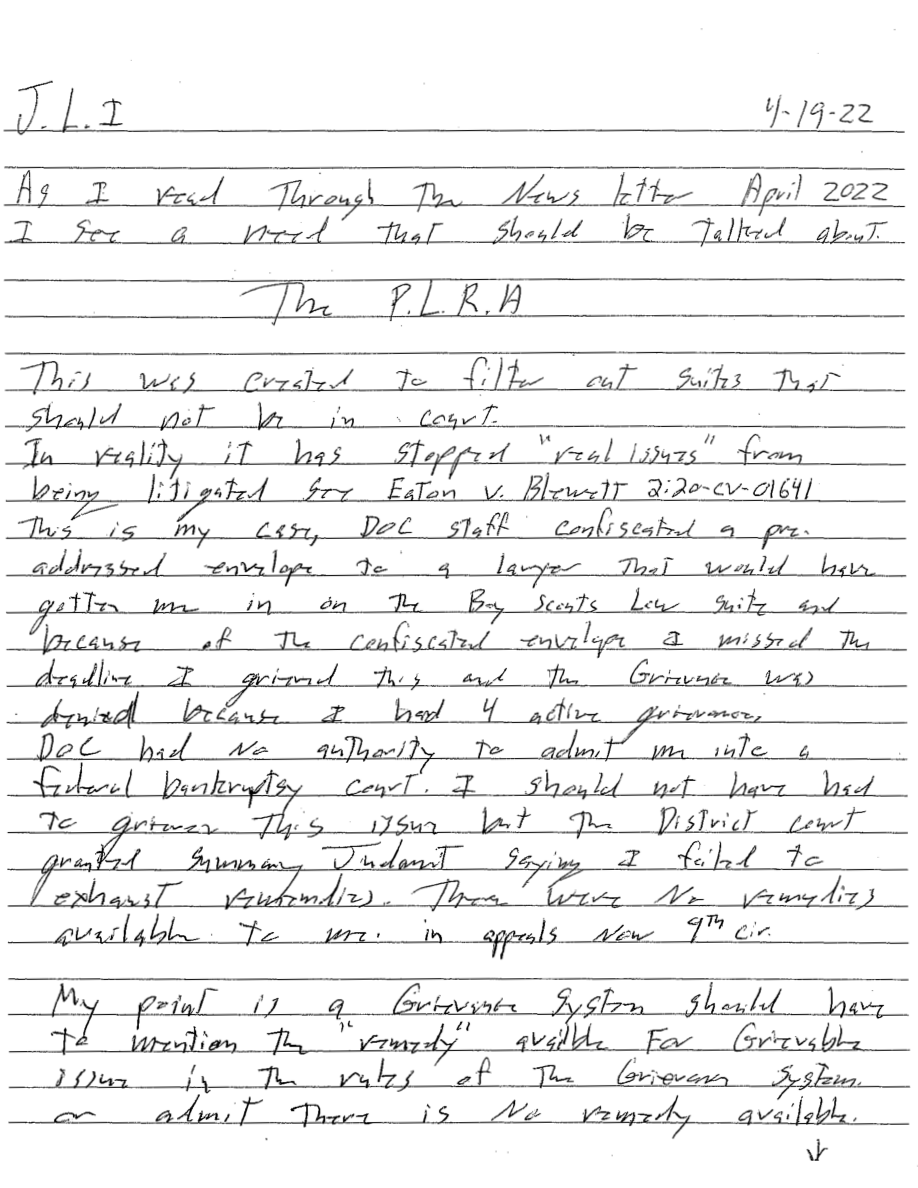 J.L.I 4-19-22
As I read Through The News letter April 2022
I See a need that should be Talked about.
The P.L.R.A
This was created to filter out suites That
should not be in court.
In reality it has stopped "real issues" from
being litigated see Eaton v. Blewett 2:20-cv-01641
This is my case, DOC staff confiscated a pre-
addressed envelope to a lawyer That would have
gotten me in on the Boy Scouts Law suite and
because of the confiscated envelope I missed the
deadline I grieved this and the Grievance was
denied because I had 4 active grievances,
DOC had No authority to admit me into a
federal bankruptsy court. I should not have had
To grieve This issue but the District court
granted Summary Judament saying I failed to
exhaust remedies. There were No remedies
available to me. in appeals Now 9TH cir.
My point is a Grievance System should have
to mention the "remedy" availble For Grievable
issue in the rules of The Grievance System.
or admit There is No remedy available.
↓